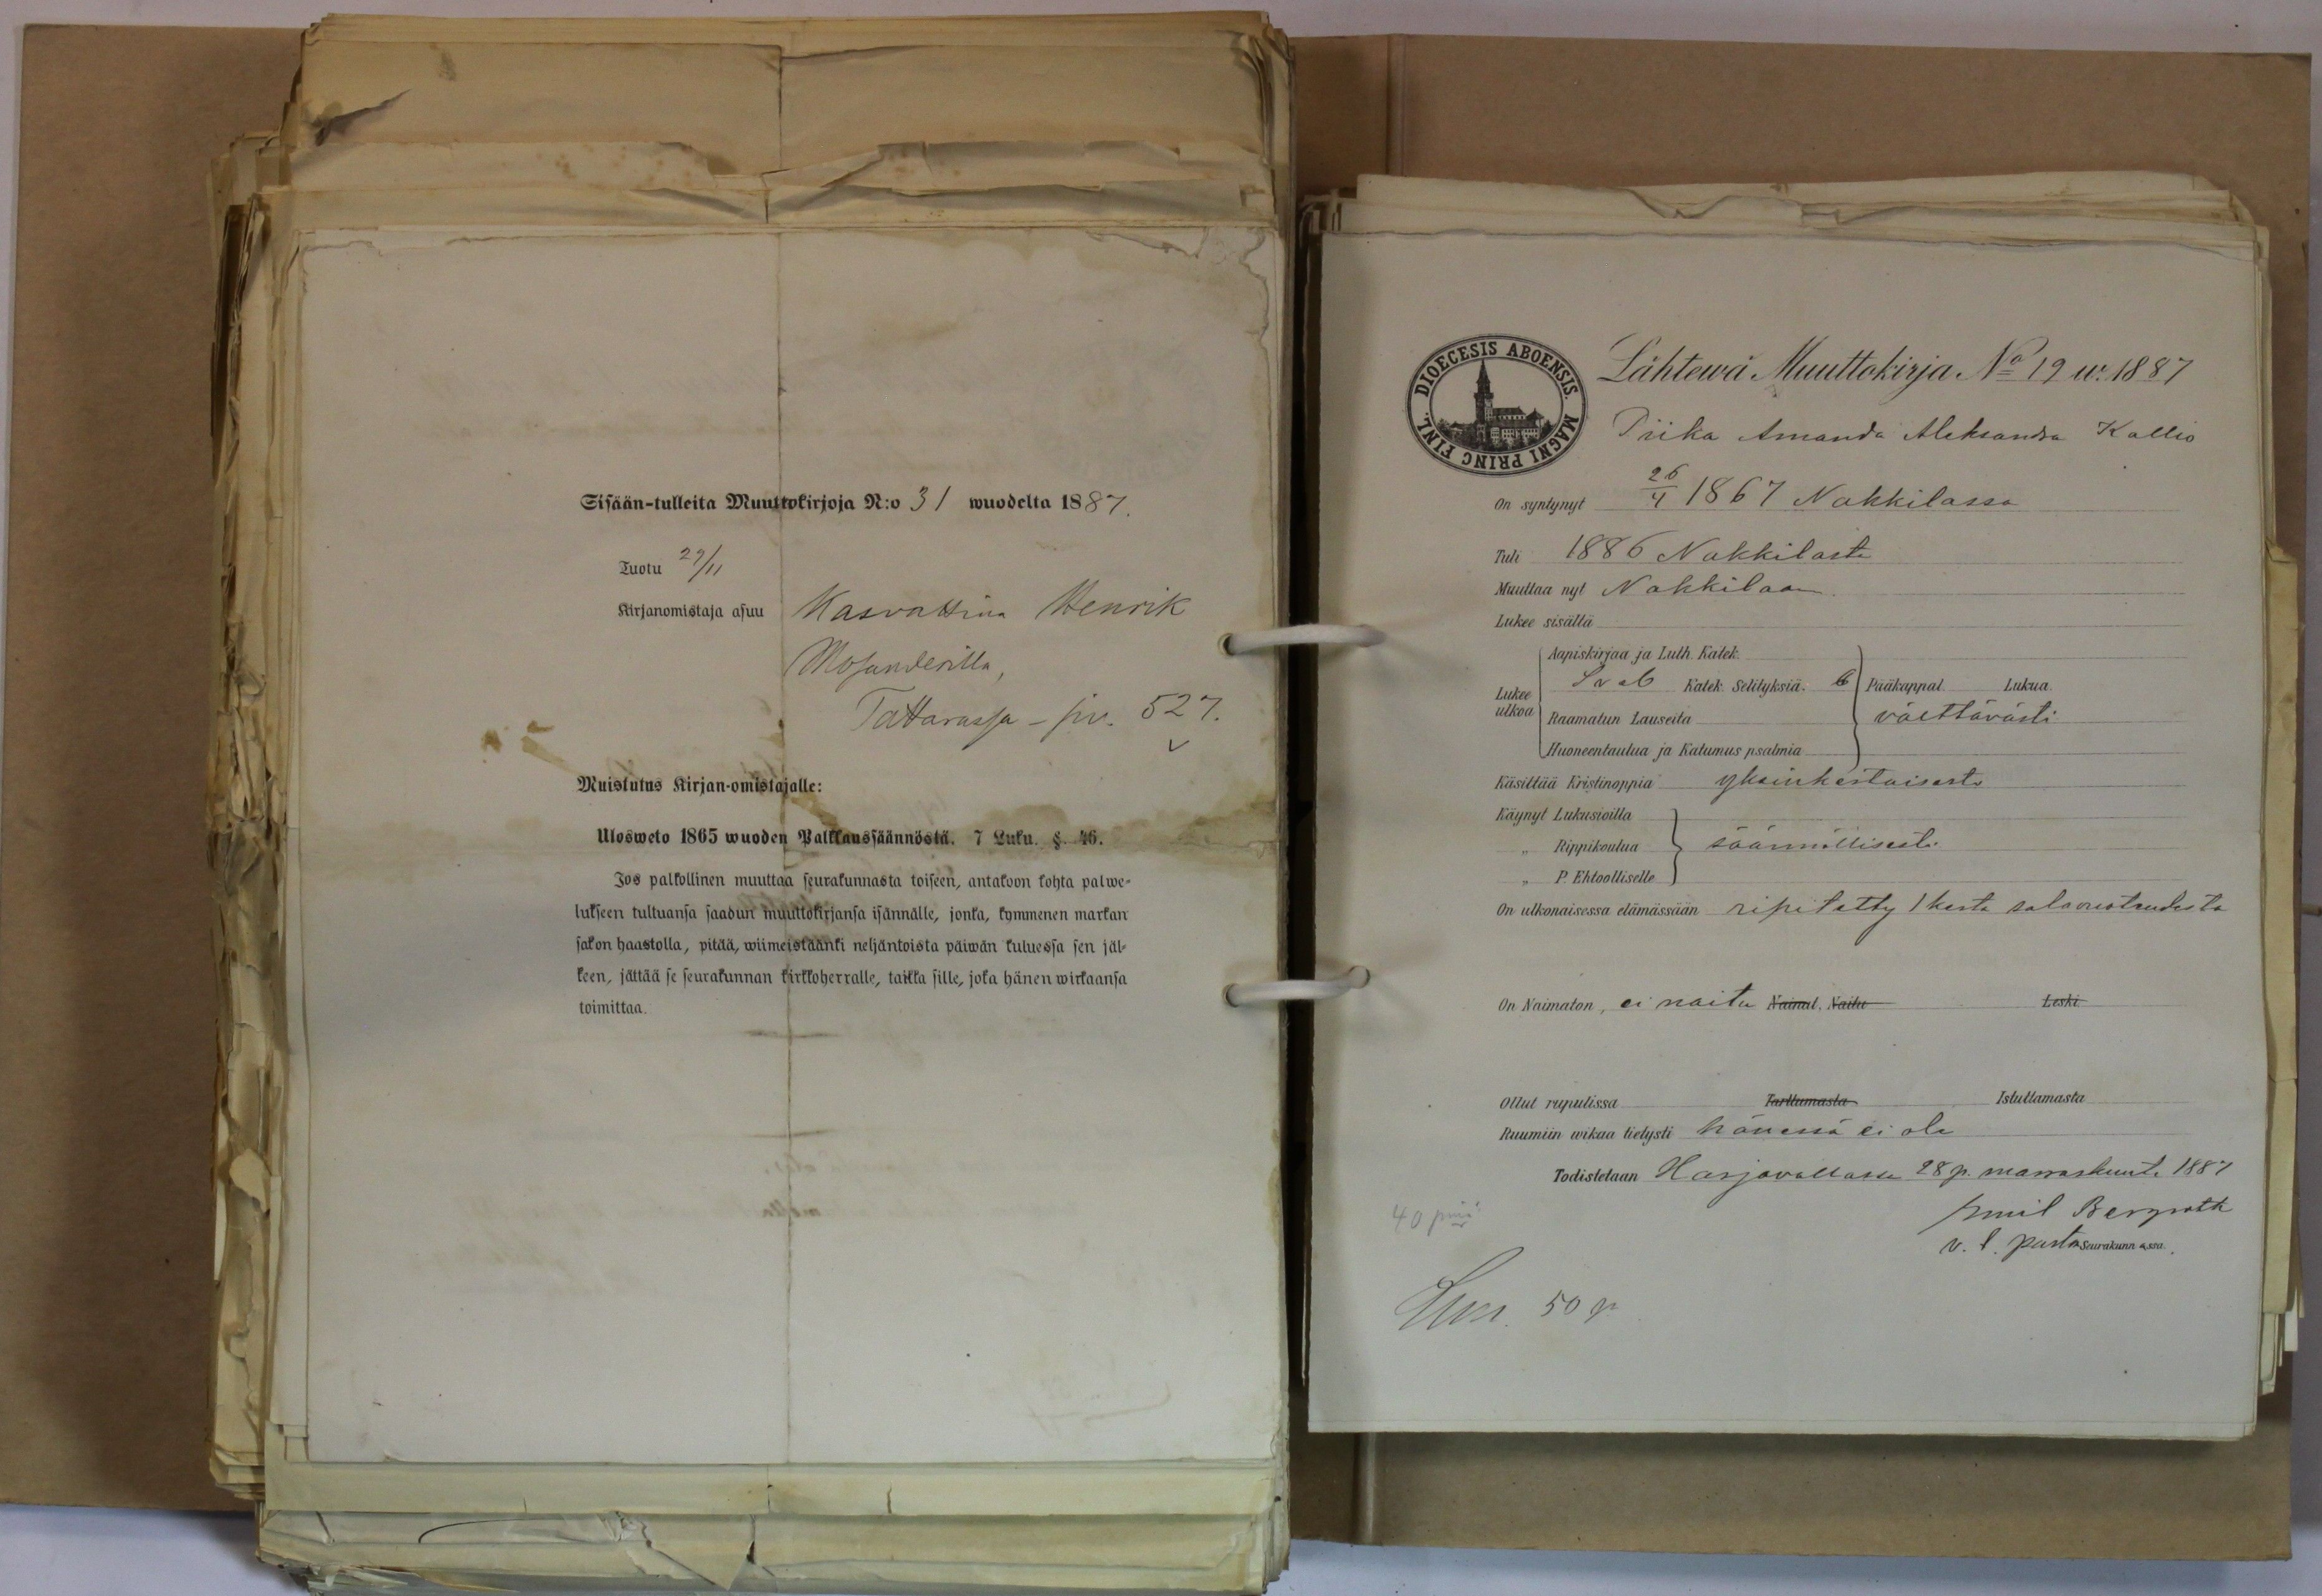 Sisään-tulleita Muuttokirjoja N:o 31 wuodelta 1887.
Tuotu 29/11
Kirjanomistaja asuu Kasvattina Henrik
Mosanderilla,
Tattarassa - siv. 527.
Muistutus Kirjan-omistajalle:
Ulosweto 1865 wuoden Palkkaussäännöstä. 7 Luku. §. 46.
Jos palkollinen muuttaa seurakunnasta toiseen, antakoon kohta palwe-
lukseen tultuansa saadun muuttokirjansa isännälle, jonka, kymmenen markan
sakon haastolla, pitää, wiimeistäänki neljäntoista päiwän kuluessa sen jäl-
keen, jättää se seurakunnan kirkkoherralle, taikka sille, joka hänen wirkaansa
toimittaa.
DIOECESIS ABOENSIS. MAGNI PRINC FINL.
Lähtewä Muuttokirja No 19 w. 1887
Piika Amanda Aleksandra Kallio
On syntynyt 26/4 1867 Nakkilassa
Tuli 1886 Nakkilasta
Muuttaa nyt Nakkilaan.
Lukee sisältä
Aapiskirjaa ja Luth. Katek.
Lukee ulkoa
Katek. Selityksiä. 6 Pääkappal. Lukua.
Raamatun Lauseita välttävästi
Huoneentaulua ja Katumus psalmia
Käsittää Kristinoppia yksinkertaisesti
Käynyt Lukusioilla
„ Rippikoulua säännöllisesti
„ P. Ehtoolliselle
On ulkonaisessa elämässään ripitetty 1 kerta salavuoteudesta
On Naimaton, ei naitu Nainut. Naitu Leski.
Ollut rupulissa Tarttumasta Istuttamasta
Ruumiin wikaa tietysti hänessä ei ole
Todistetaan Harjavallassa 28 p. marraskuuta 1887
40 pniä
Emil Bergroth
v. t. pastor Seurakunn assa.
50 p